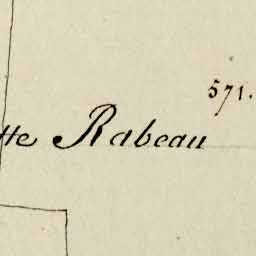 571.
tte Rabeau